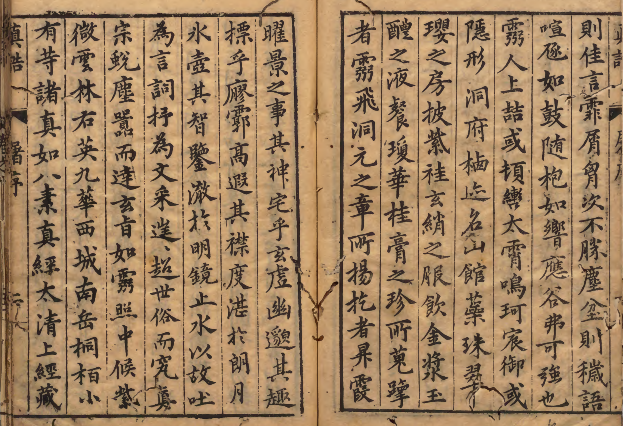 則佳言霏屑胷次不勝塵坌則穢語
喧豗如鼓隨枹如響應谷弗可強也
霛人上喆或頓轡太霄鳴珂宸御或
隱形洞府栖迹名山館蘂珠翠
瓔之房披紫袿玄綃之服飲金漿玉
醴之液餐瓊華桂膏之珍所蒐擇
者霛飛洞元之章所揚扢者昇霞
曜景之事其神宅乎玄虛幽邈其趣
摽乎廫霩高遐其襟度湛於朗月
氷壺其智鑒澈於明鏡止水以故吐
為言詞抒為文采逴超世俗而究真
宗蛻塵嚣而達玄旨如霛照中候紫
微雲林石英九華西城南岳桐栢小
有等諸真如八素真經太清上經藏
真誥
序